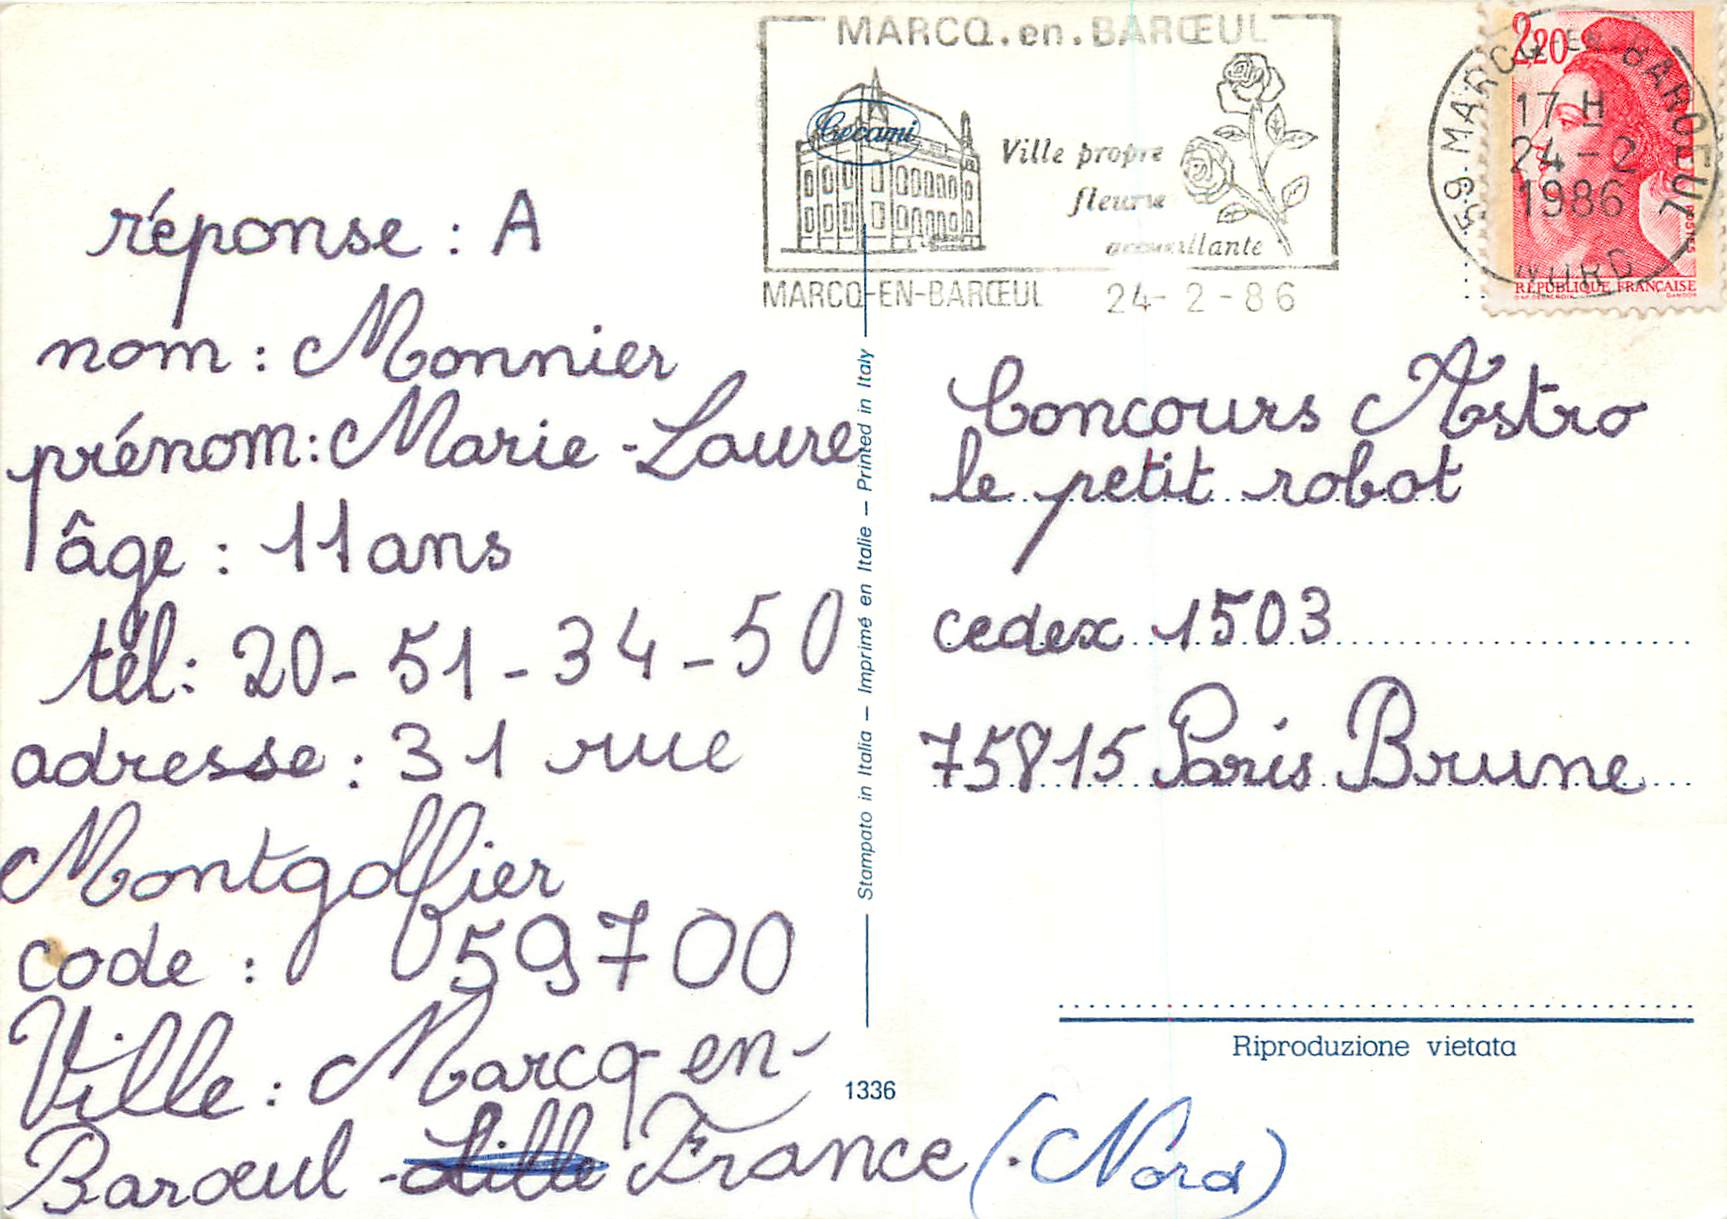 MARCQ.en.BARŒUL
Cecami
Ville propre
fleurie
accueillante
MARCQ-EN-BARŒUL 24-2-86
2,20
59 MARCQ-EN-BAROEUL
17 H
24-2
1986
NORD
POSTES
RÉPUBLIQUE FRANÇAISE
réponse : A
nom : Monnier
prénom: Marie-Laure
âge : 11 ans
tél: 20-51-34-50
adresse : 31 rue
Montgolfier
code : 59700
Ville : Marcq-en-
Baroeul - Lille France (Nord)
Stampato in Italia – Imprimé en Italie – Printed in Italy
1336
Concours Astro
le petit robot
cedex 1503
75815 Paris Brune
Riproduzione vietata